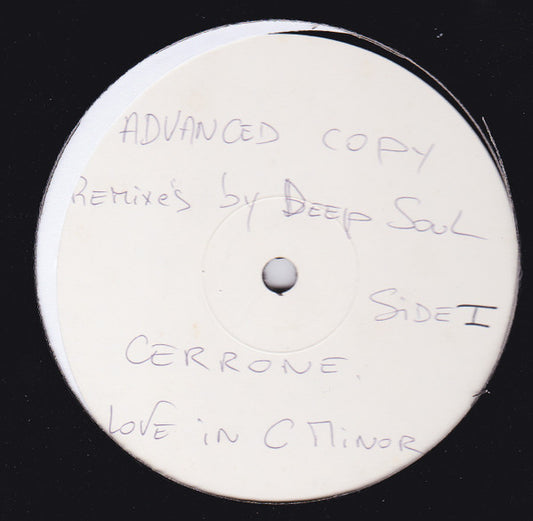 ADVANCED COPY
REMixe's by DEEP SOUL
SiDE I
CERRONE.
LOVE iN C MiNOR